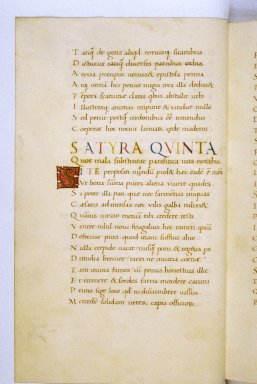 T anq̃ de getis aliqd toruisq; sicambris
D icturus tanq̃ diuersis partibus orbis
A nxia precipiti uenisset epistola penna
A tq; utinã his potius nugis tota illa dedisset
T empora seuitiæ claras qbus abstulit urbi
I llustresq; animas impune et uindice nullo
S ed periit postq̃ cerdonibus eẽ timendus
C eperat hoc nocuit lamiarũ cede madenti
SATYRA QVINTA
Quot mala substineat parasitica uita notabis
SI TE propositi nondũ pudet hac eadẽ ẽ mẽs
V t bona summa putes aliena uiuere quadra
S i potes illa pati quæ nec sarmentus iniquas
C æsaris ad mensas nec uilis galba tulisset
Q uãuis iurato metuã tibi credere testi
V entre nihil noui frugalius hoc tamen ipsũ
D efecisse puta quod inani sufficit aluo
N ulla crepido uacat nusq̃ pons et tegetis ps
D imidia breuior tanti ne iniuria coenæ
T am ieiuna fames cũ possis honestius illic
E t tremere et sordes farris mordere canini
P rimo fige loco qd tu discumbere iussus
M ercedẽ solidam ueterũ capis officiorũ